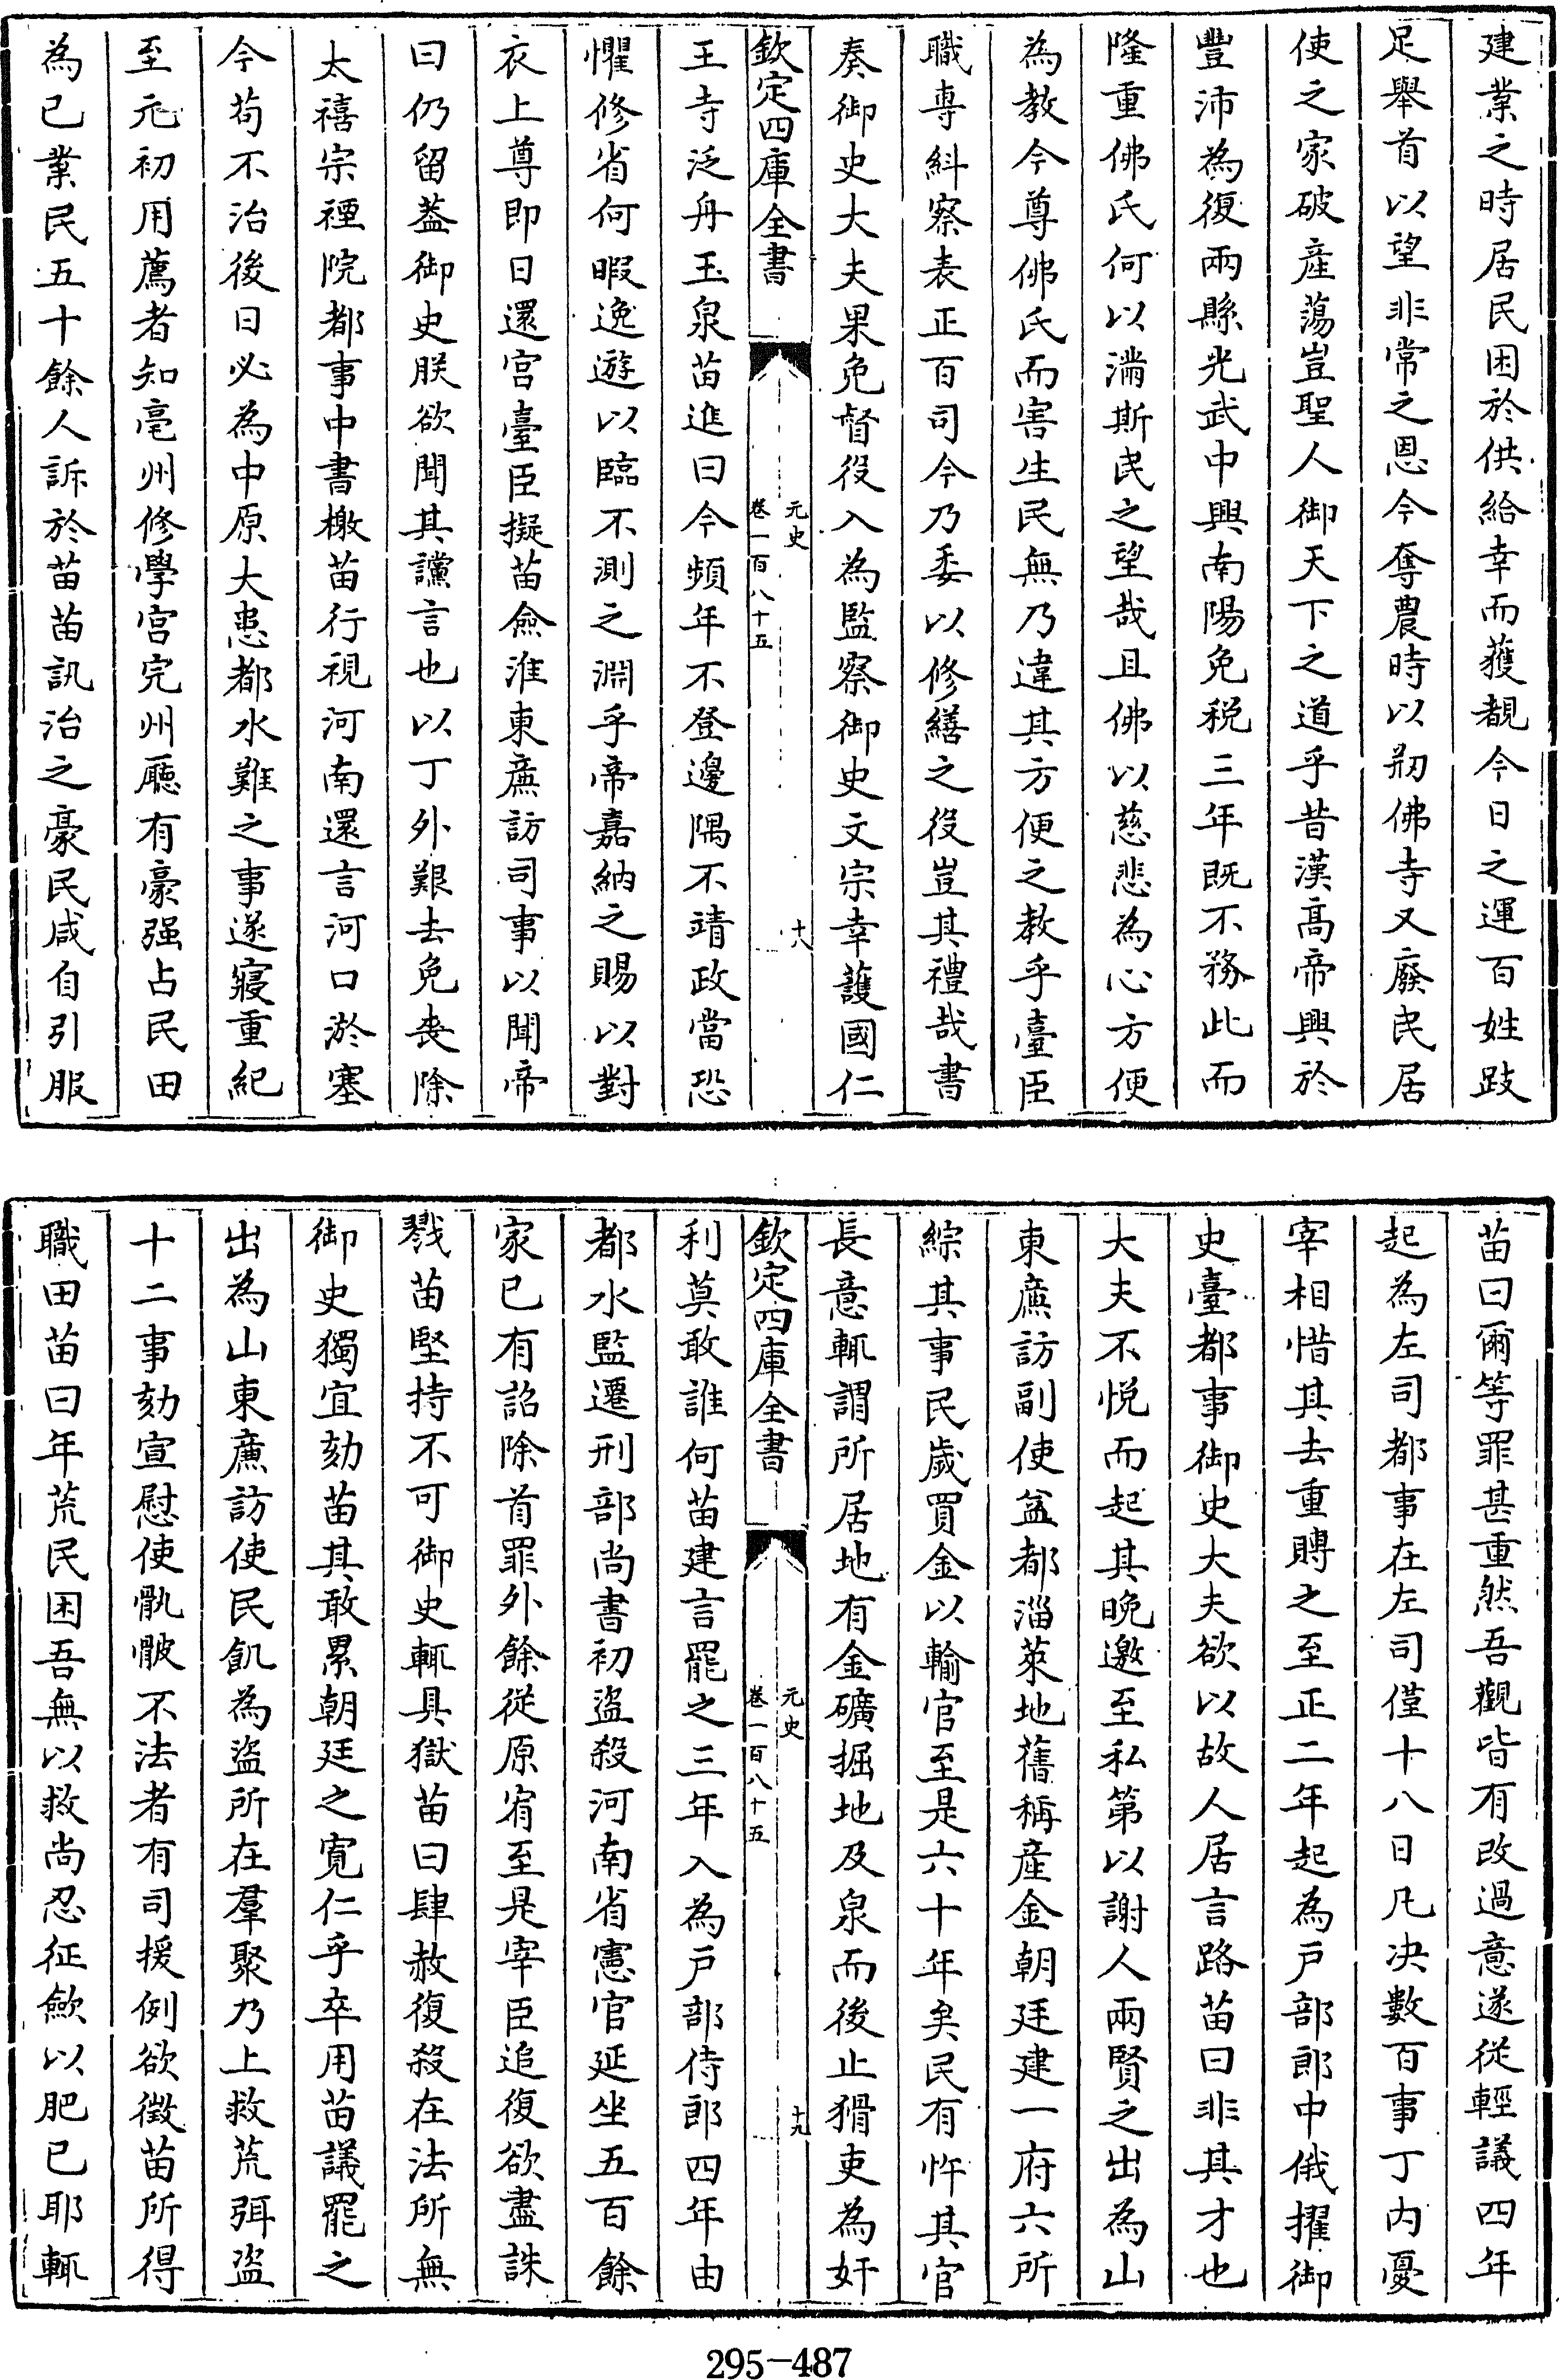 建業之時居民困於供給幸而獲覩今日之運百姓跂
足舉首以望非常之恩今奪農時以剏佛寺又廢民居
使之家破產蕩豈聖人御天下之道乎昔漢髙帝興於
豐沛為復兩縣光武中興南陽免税三年既不務此而
隆重佛氏何以滿斯民之望哉且佛以慈悲為心方便
為教今尊佛氏而害生民無乃違其方便之教乎臺臣
職専糾察表正百司今乃委以修繕之役豈其禮哉書
奏御史大夫果免督役入為監察御史文宗幸護國仁
欽定四庫全書
元史
卷一百八十五
十八
王寺泛舟玉泉苗進曰今頻年不登邊隅不靖政當恐
懼修省何暇逸遊以臨不測之淵乎帝嘉納之賜以對
衣上尊即日還宫臺臣擬苗僉淮東亷訪司事以聞帝
曰仍留葢御史朕欲聞其讜言也以丁外艱去免丧除
太禧宗禋院都事中書檄苗行視河南還言河口淤塞
今茍不治後日必為中原大患都水難之事遂寢重紀
至元初用薦者知亳州修學宫完州廳有豪强占民田
為已業民五十餘人訴於苗苗訊治之豪民咸自引服
苗曰爾等罪甚重然吾觀皆有改過意遂從輕議四年
起為左司都事在左司僅十八日凡决數百事丁内憂
宰相惜其去重賻之至正二年起為戸部郎中俄擢御
史臺都事御史大夫欲以故人居言路苗曰非其才也
大夫不悦而起其晚邀至私第以謝人兩賢之出為山
東亷訪副使益都淄萊地舊稱產金朝廷建一府六所
綜其事民歲買金以輸官至是六十年矣民有忤其官
長意輒謂所居地有金礦掘地及泉而後止猾吏為奸
欽定四庫全書
元史
卷一百八十五
十九
利莫敢誰何苗建言罷之三年入為戸部侍郎四年由
都水監遷刑部尚書初盜殺河南省憲官延坐五百餘
家已有詔除首罪外餘從原宥至是宰臣追復欲盡誅
戮苗堅持不可御史輒具獄苗曰肆赦復殺在法所無
御史獨宜劾苗其敢累朝廷之寛仁乎卒用苗議罷之
出為山東亷訪使民飢為盜所在羣聚乃上救荒弭盜
十二事劾宣慰使骫骳不法者有司援例欲徴苗所得
職田苗曰年荒民困吾無以救尚忍征歛以肥已耶輒
295-487